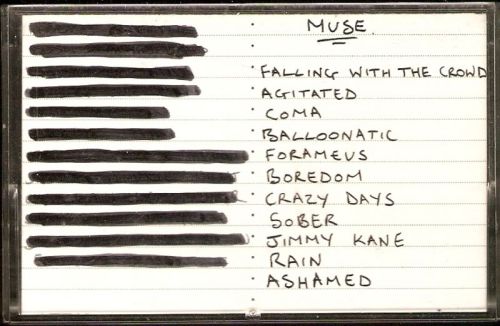 MUSE
FALLING WITH THE CROWD
AGITATED
COMA
BALLOONATIC
FORAMEUS
BOREDOM
CRAZY DAYS
SOBER
JIMMY KANE
RAIN
ASHAMED